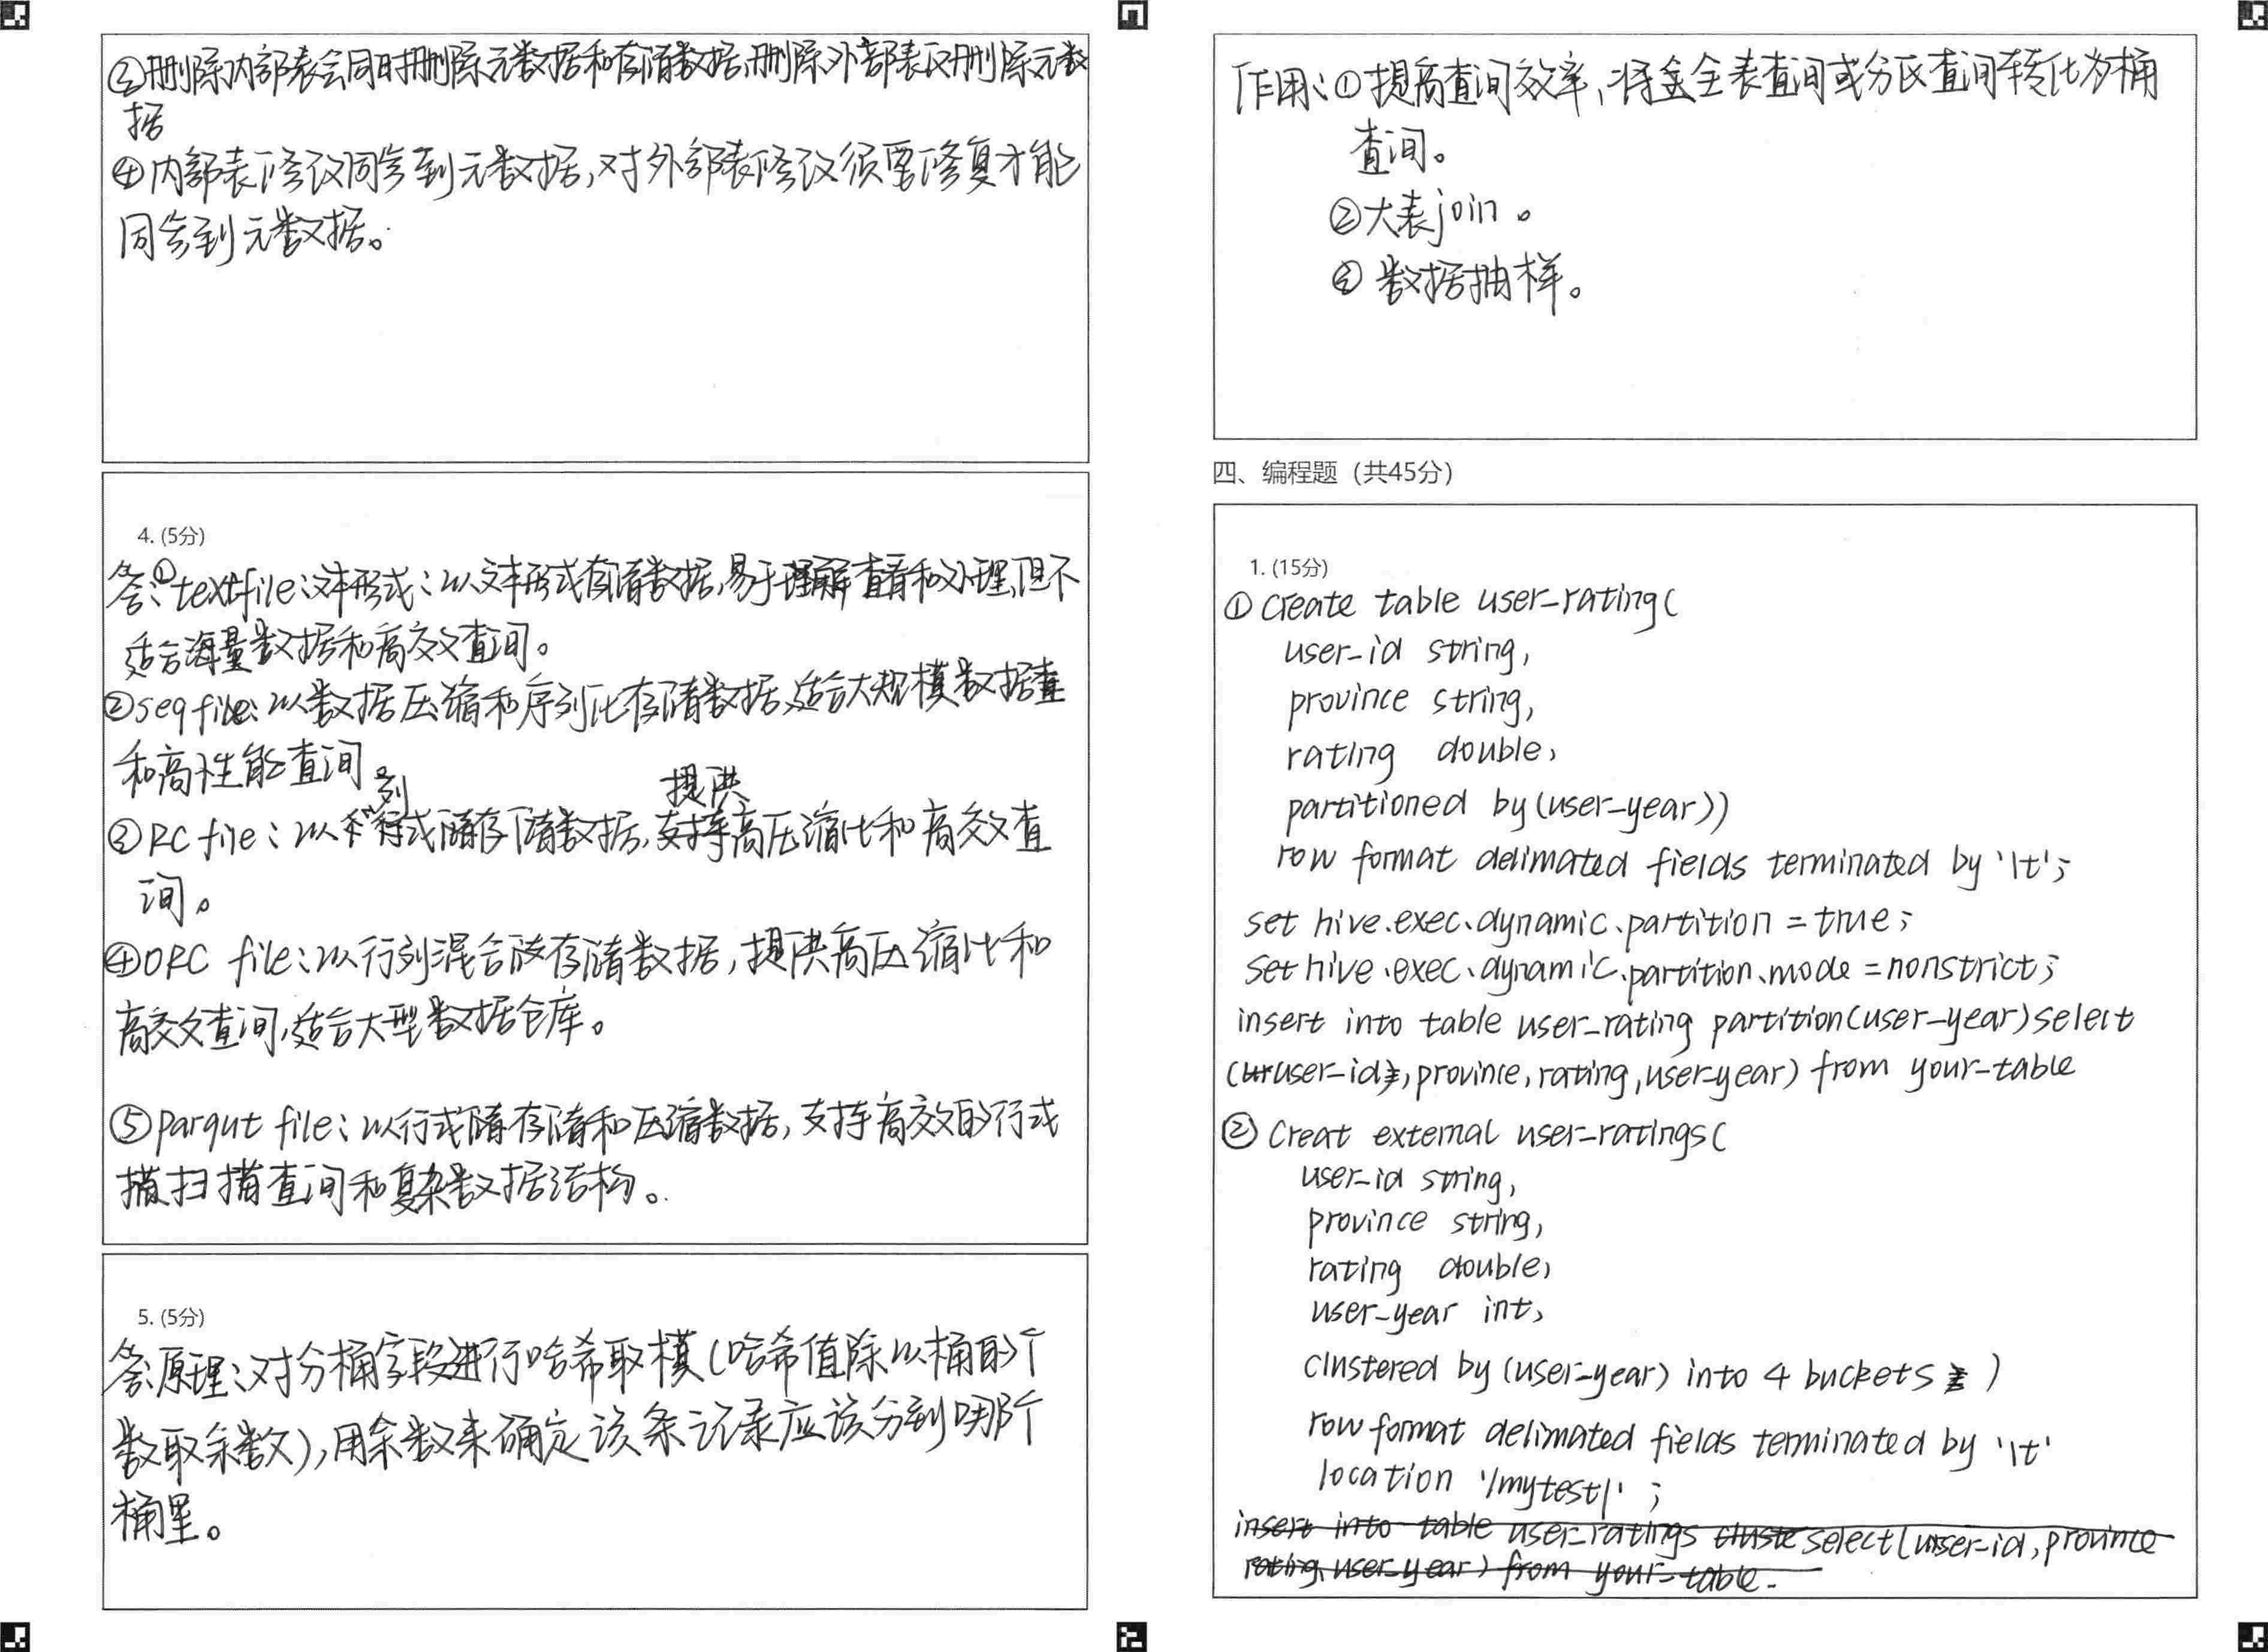 ③删除内部表会同时删除元数据和存储数据,删除外部表仅删除元数
据
④内部表修改同步到元数据,对外部表修改须要修复才能
同步到元数据。
4. (5分)
答:①textfile:文本形式:以文本形式存储数据,易于理解查看和处理,但不
适合海量数据和高效查询。
②seqfile:以数据压缩和序列化存储数据,适合大规模数据查
和高性能查询
③RC file:以列式存储数据,提供高压缩比和高效查
询。
④ORC file:以行列混合存储数据,提供高压缩比和
高效查询,适合大型数据仓库。
⑤parqut file:以行式存储和压缩数据,支持高效的行式
扫描查询和复杂数据结构。
5. (5分)
答:原理:对分桶字段进行哈希取模(哈希值除以桶的个
数取余数),用余数来确定该条记录应该分到哪个
桶里。
作用:①提高查询效率,将全表查询或分区查询转化为桶
查询。
②大表join。
③数据抽样。
四、编程题(共45分)
1. (15分)
① Create table user_rating(
user_id string,
province string,
rating double,
partitioned by(user_year))
row format delimated fields terminated by '\t';
set hive.exec.dynamic.partition = true;
set hive.exec.dynamic.partition.mode = nonstrict;
insert into table user_rating partition(user_year) select
(user_id, province, rating, user_year) from your_table
② Creat external user_ratings(
user_id string,
province string,
rating double,
user_year int,
clustered by (user_year) into 4 buckets )
row format delimated fields terminated by '\t'
location '/mytest/' ;
insert into table user_ratings cluste select(user_id, province
rating, user_year) from your_table.